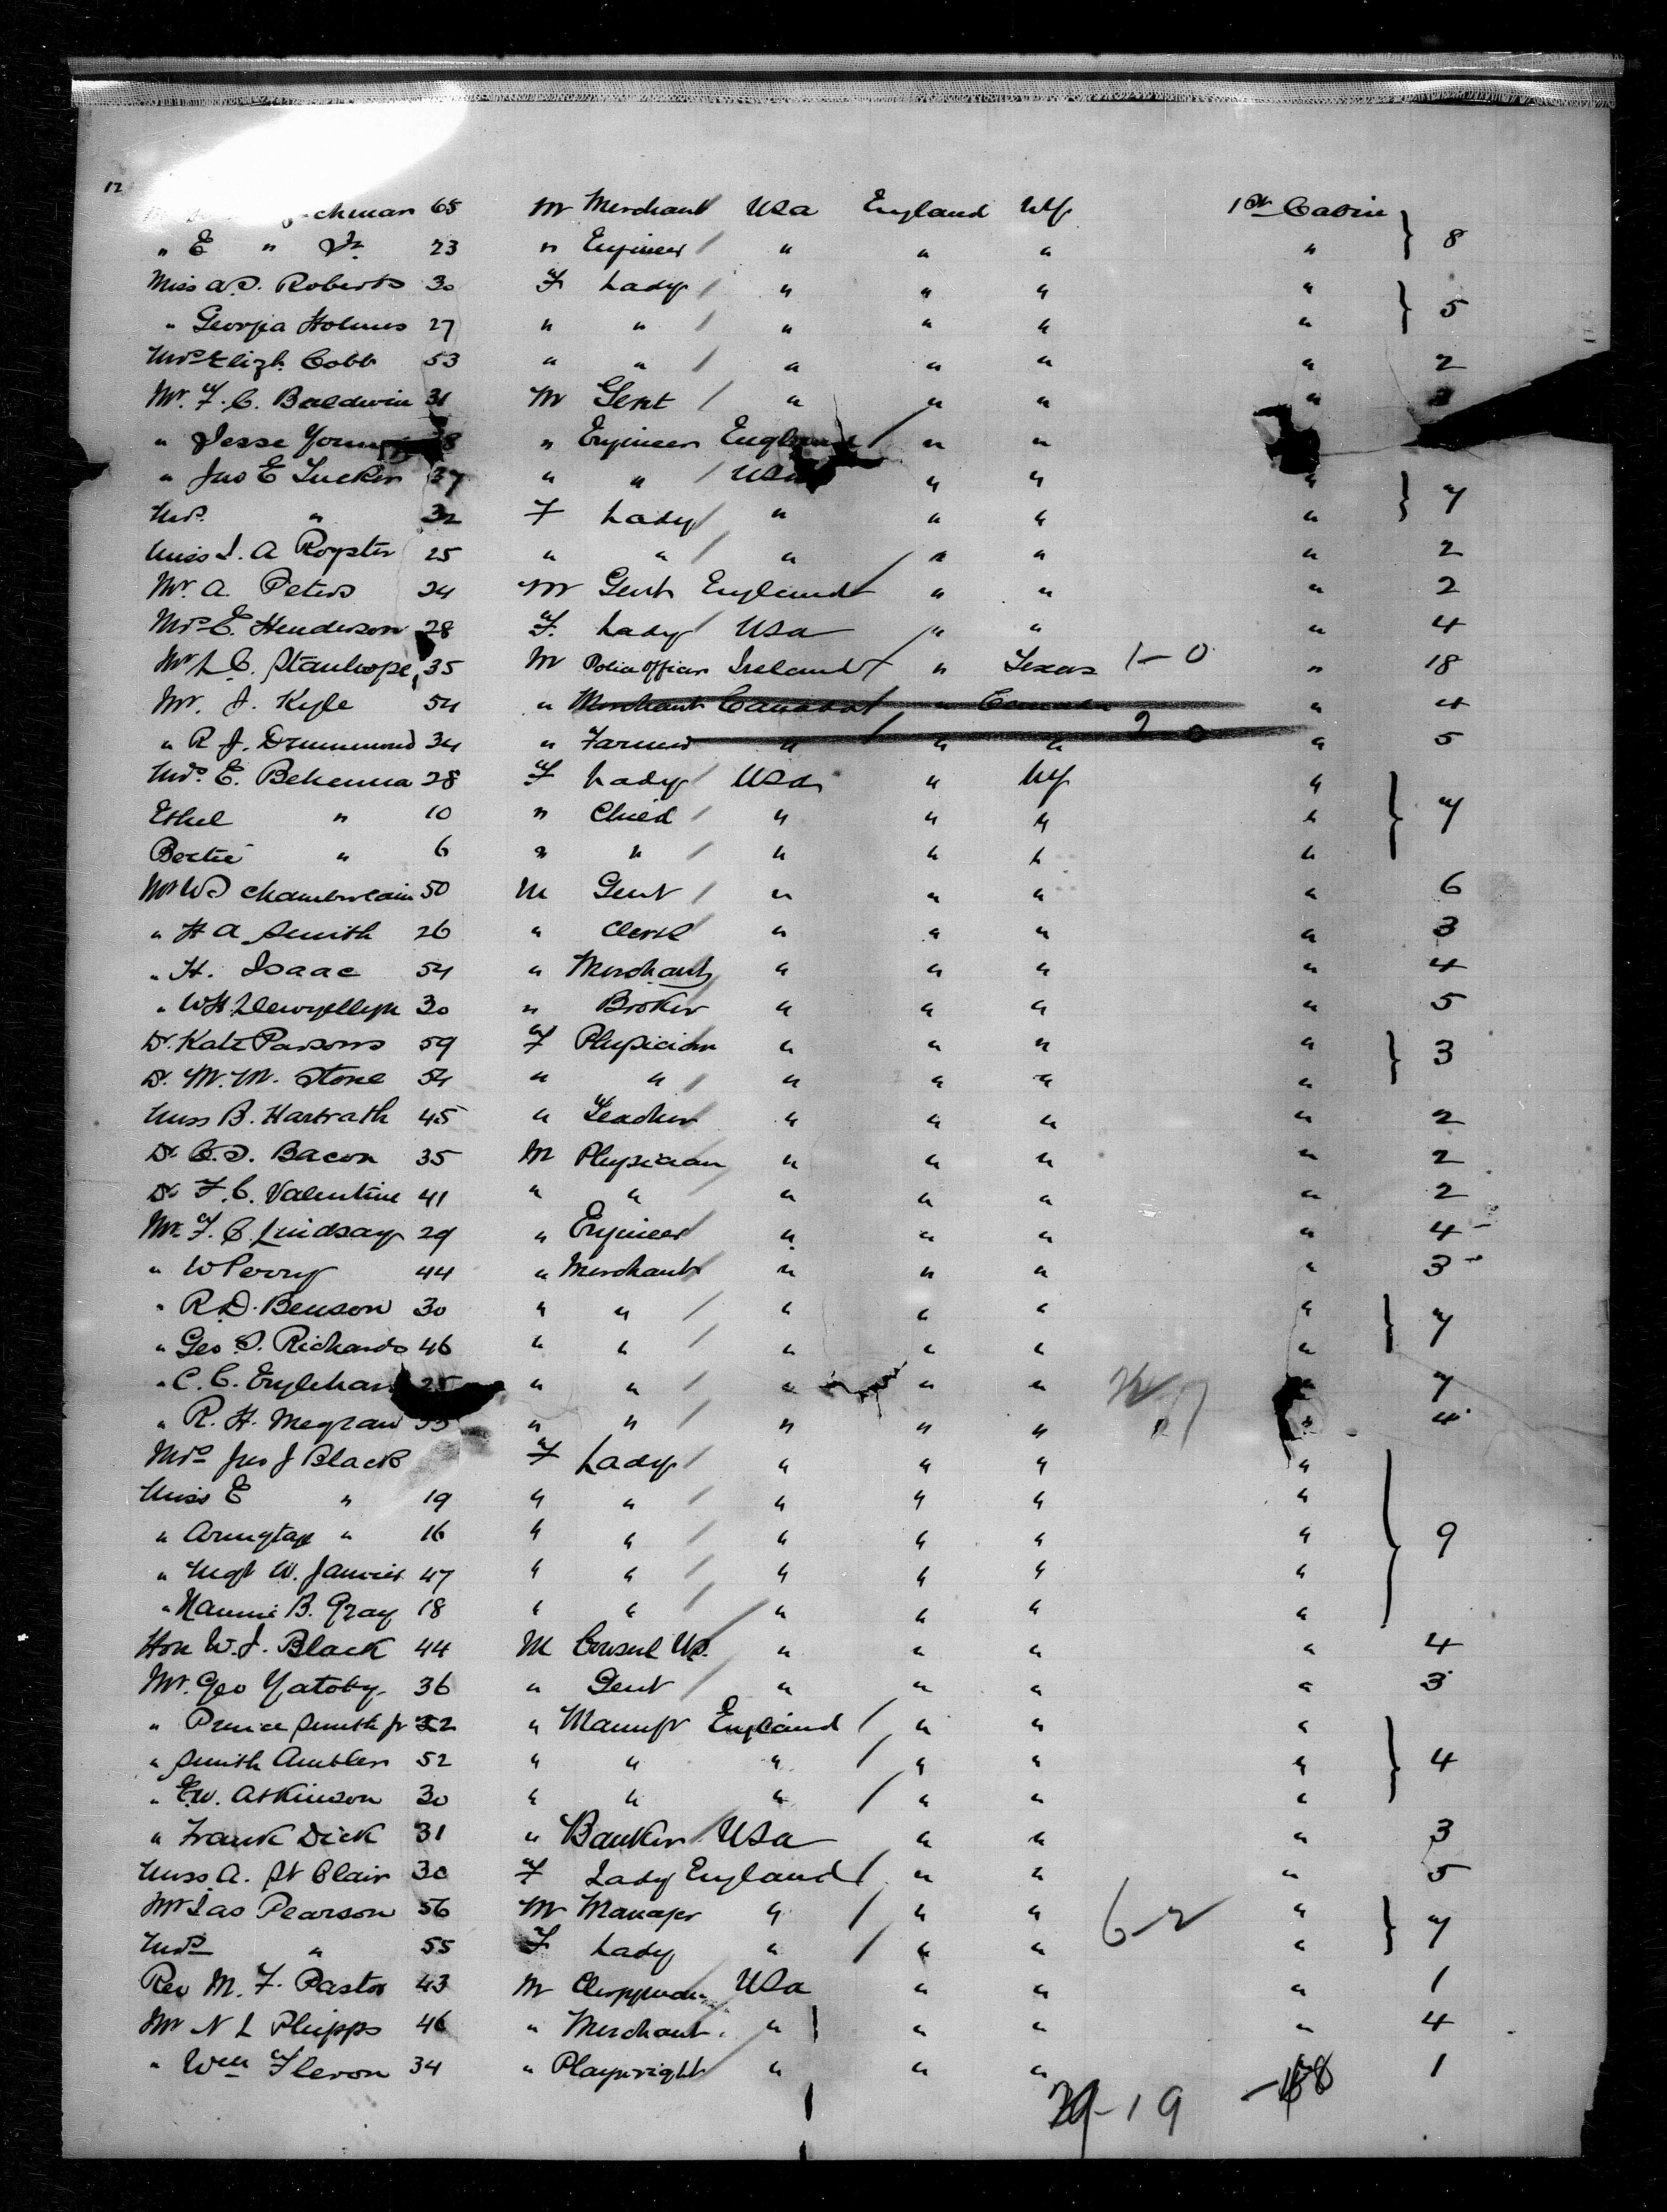 12
chman 65 M Merchant USA England NY 1st Cabin
" E " Jr 23 " Engineer / " " " " 8
Miss A.S. Roberts 30 F Lady / " " " "
" Georgia Holmes 27 " " / " " " " 5
Mrs Elizh. Cobb 53 " " / " " " " 2
Mr. F. C. Baldwin 31 M Gent / " " " "
" Jesse Young " Engineer England / " "
" Jno E Tucker 37 " " / USA " " "
Mrs. " 32 F Lady / " " " " 7
Miss I. A Royster 25 " " / " " " " 2
Mr. A. Peters 24 M Gent England / " " " 2
Mrs E. Henderson 28 F. Lady / USA " " " 4
Mr L C. Stanhope 35 M Police Officer Ireland / " Texas 1-0 " 18
Mr. J. Kyle 54 " Merchant Canada / " Canada " 4
" R J. Drummond 34 " Farmer " " " 2 0 " 5
Mrs. E. Behenna 28 F Lady / USA " NY "
Ethel " 10 " Child / " " " " 7
Bertie " 6 " " / " " " "
Mr W S Chamberlain 50 M Gent / " " " " 6
" H A Smith 26 " Clerk " " " " 3
" H. Isaac 54 " Merchant " " " " 4
" WH. Llewyellyn 30 " Broker " " " " 5
Dr. Kate Parsons 59 F Physician " " " "
Dr. M. M. Stone 54 " " / " " " " 3
Miss B. Hartrath 45 " Teacher " " " " 2
Dr C. S. Bacon 35 M Physician " " " " 2
Dr F. C. Valentine 41 " " " " " " 2
Mr. F. C. Lindsay 29 " Engineer " " " " 4 -
" W Perry 44 " Merchant " " " " 3 -
" R.D. Benson 30 " " / " " " "
" Geo S. Richards 46 " " / " " " " 7
" C. C. 25 " " / " " " " 7
" R. H. Megraw " " / " " " " 4
Mrs Jno J Black F Lady / " " " "
Miss E " 19 " " / " " " "
" " 16 " " / " " " " 9
" Mgt W. 47 " " / " " " "
" Nannie B. Gray 18 " " / " " " "
Hon W. J. Black 44 M Consul US. " " " " 4
Mr. Geo Yatoby 36 " Gent / " " " " 3
" Prince Smith Jr 32 " Manufr England / " " "
" Smith Ambler 52 " " " / " " " 4
" E.W. Atkinson 30 " " " / " " "
" Frank Dick 31 " Banker / USA " " " 3
Miss A. St Clair 30 F Lady England / " " " 5
Mr Jas Pearson 56 M Manager " / " " 6-2 "
Mrs " 55 F Lady " / " " " 7
Rev M. F. Pastor 43 M Clergyman USA " " " 1
Mr N L Phipps 46 " Merchant " " " " 4
" Wm Fleron 34 " Playwright " " " 1
19